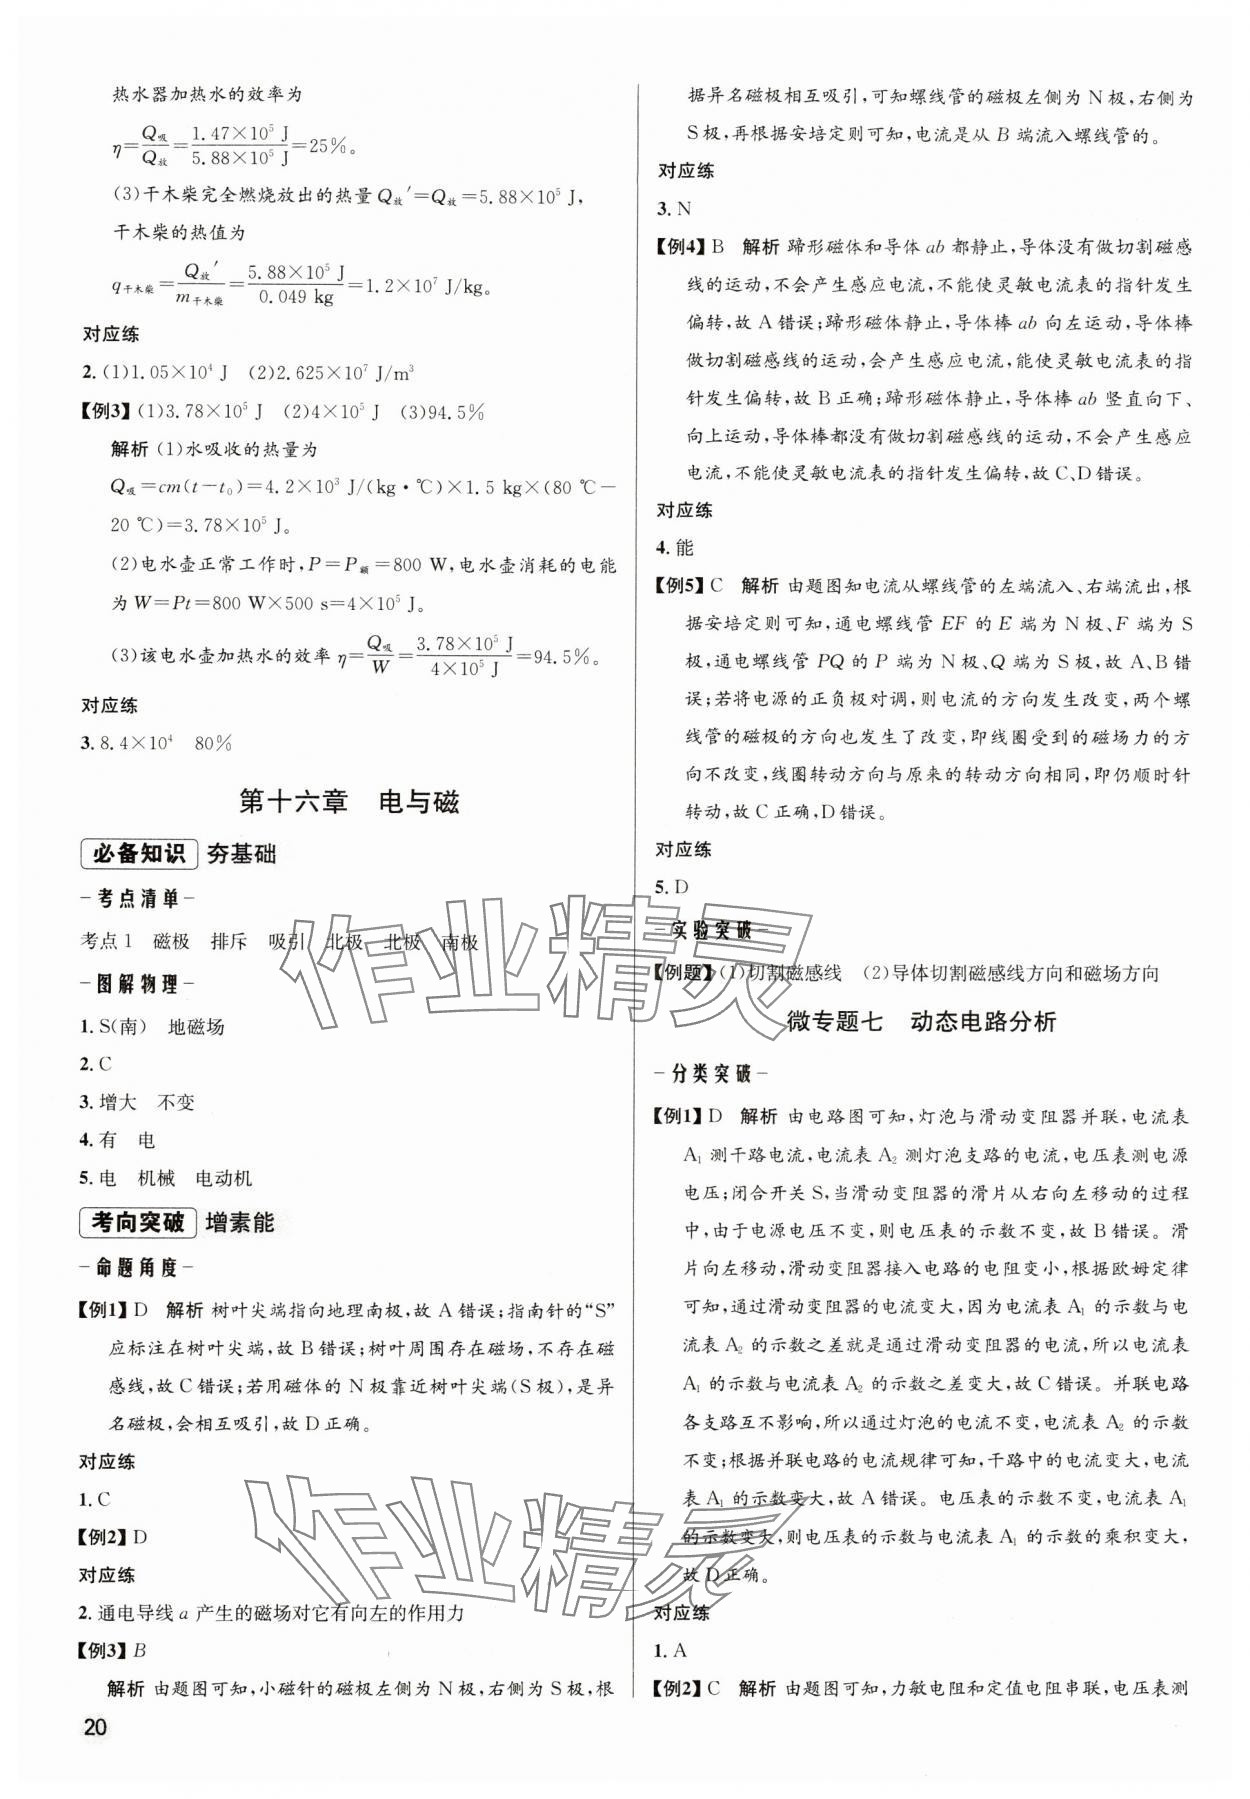 热水器加热水的效率为
η=Q吸/Q放=1.47×10⁵ J/5.88×10⁵ J=25%。
(3)干木柴完全燃烧放出的热量 Q放′=Q放=5.88×10⁵ J,
干木柴的热值为
q干木柴=Q放′/m干木柴=5.88×10⁵ J/0.049 kg=1.2×10⁷ J/kg。
对应练
2.(1)1.05×10⁴ J (2)2.625×10⁷ J/m³
【例3】(1)3.78×10⁵ J (2)4×10⁵ J (3)94.5%
解析 (1)水吸收的热量为
Q吸=cm(t-t₀)=4.2×10³ J/(kg·℃)×1.5 kg×(80 ℃-
20 ℃)=3.78×10⁵ J。
(2)电水壶正常工作时,P=P额=800 W,电水壶消耗的电能
为 W=Pt=800 W×500 s=4×10⁵ J。
(3)该电水壶加热水的效率 η=Q吸/W=3.78×10⁵ J/4×10⁵ J=94.5%。
对应练
3.8.4×10⁴ 80%
第十六章 电与磁
必备知识 夯基础
-考点清单-
考点1 磁极 排斥 吸引 北极 北极 南极
-图解物理-
1.S(南) 地磁场
2.C
3.增大 不变
4.有 电
5.电 机械 电动机
考向突破 增素能
-命题角度-
【例1】D 解析 树叶尖端指向地理南极,故 A 错误;指南针的“S”
应标注在树叶尖端,故 B 错误;树叶周围存在磁场,不存在磁
感线,故 C 错误;若用磁体的 N 极靠近树叶尖端(S 极),是异
名磁极,会相互吸引,故 D 正确。
对应练
1.C
【例2】D
对应练
2.通电导线 a 产生的磁场对它有向左的作用力
【例3】B
解析 由题图可知,小磁针的磁极左侧为 N 极,右侧为 S 极,根
20
据异名磁极相互吸引,可知螺线管的磁极左侧为 N 极,右侧为
S 极,再根据安培定则可知,电流是从 B 端流入螺线管的。
对应练
3.N
【例4】B 解析 蹄形磁体和导体 ab 都静止,导体没有做切割磁感
线的运动,不会产生感应电流,不能使灵敏电流表的指针发生
偏转,故 A 错误;蹄形磁体静止,导体棒 ab 向左运动,导体棒
做切割磁感线的运动,会产生感应电流,能使灵敏电流表的指
针发生偏转,故 B 正确;蹄形磁体静止,导体棒 ab 竖直向下、
向上运动,导体棒都没有做切割磁感线的运动,不会产生感应
电流,不能使灵敏电流表的指针发生偏转,故 C、D 错误。
对应练
4.能
【例5】C 解析 由题图知电流从螺线管的左端流入、右端流出,根
据安培定则可知,通电螺线管 EF 的 E 端为 N 极、F 端为 S
极,通电螺线管 PQ 的 P 端为 N 极、Q 端为 S 极,故 A、B 错
误;若将电源的正负极对调,则电流的方向发生改变,两个螺
线管的磁极的方向也发生了改变,即线圈受到的磁场力的方
向不改变,线圈转动方向与原来的转动方向相同,即仍顺时针
转动,故 C 正确,D 错误。
对应练
5.D
-实验突破-
【例题】(1)切割磁感线 (2)导体切割磁感线方向和磁场方向
微专题七 动态电路分析
-分类突破-
【例1】D 解析 由电路图可知,灯泡与滑动变阻器并联,电流表
A₁ 测干路电流,电流表 A₂ 测灯泡支路的电流,电压表测电源
电压;闭合开关 S,当滑动变阻器的滑片从右向左移动的过程
中,由于电源电压不变,则电压表的示数不变,故 B 错误。滑
片向左移动,滑动变阻器接入电路的电阻变小,根据欧姆定律
可知,通过滑动变阻器的电流变大,因为电流表 A₁ 的示数与电
流表 A₂ 的示数之差就是通过滑动变阻器的电流,所以电流表
A₁ 的示数与电流表 A₂ 的示数之差变大,故 C 错误。并联电路
各支路互不影响,所以通过灯泡的电流不变,电流表 A₂ 的示数
不变;根据并联电路的电流规律可知,干路中的电流变大,电流
表 A₁ 的示数变大,故 A 错误。电压表的示数不变,电流表 A₁
的示数变大,则电压表的示数与电流表 A₁ 的示数的乘积变大,
故 D 正确。
对应练
1.A
【例2】C 解析 由题图可知,力敏电阻和定值电阻串联,电压表测
作业精灵
作业精灵